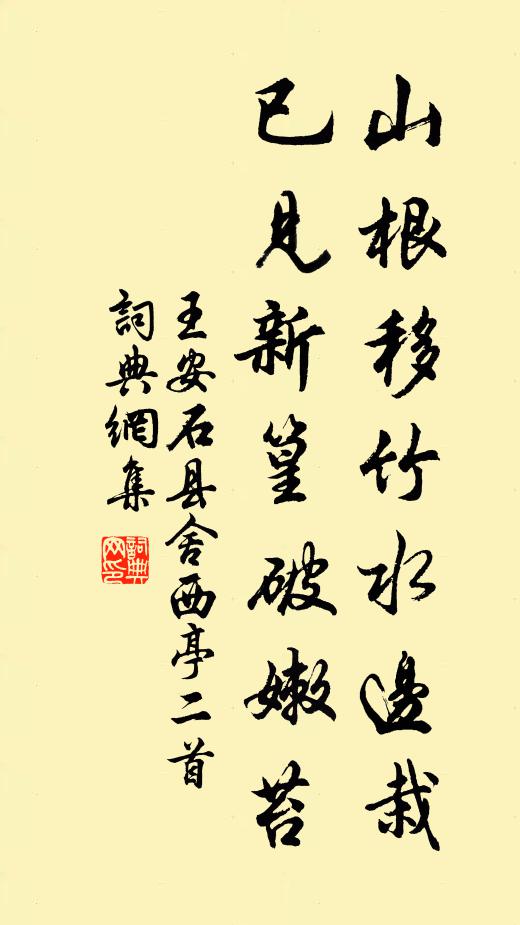 山根移竹水邊栽
已見新篁破嫩苔
王安石县舍西亭二首
詞典網集
詞典網印